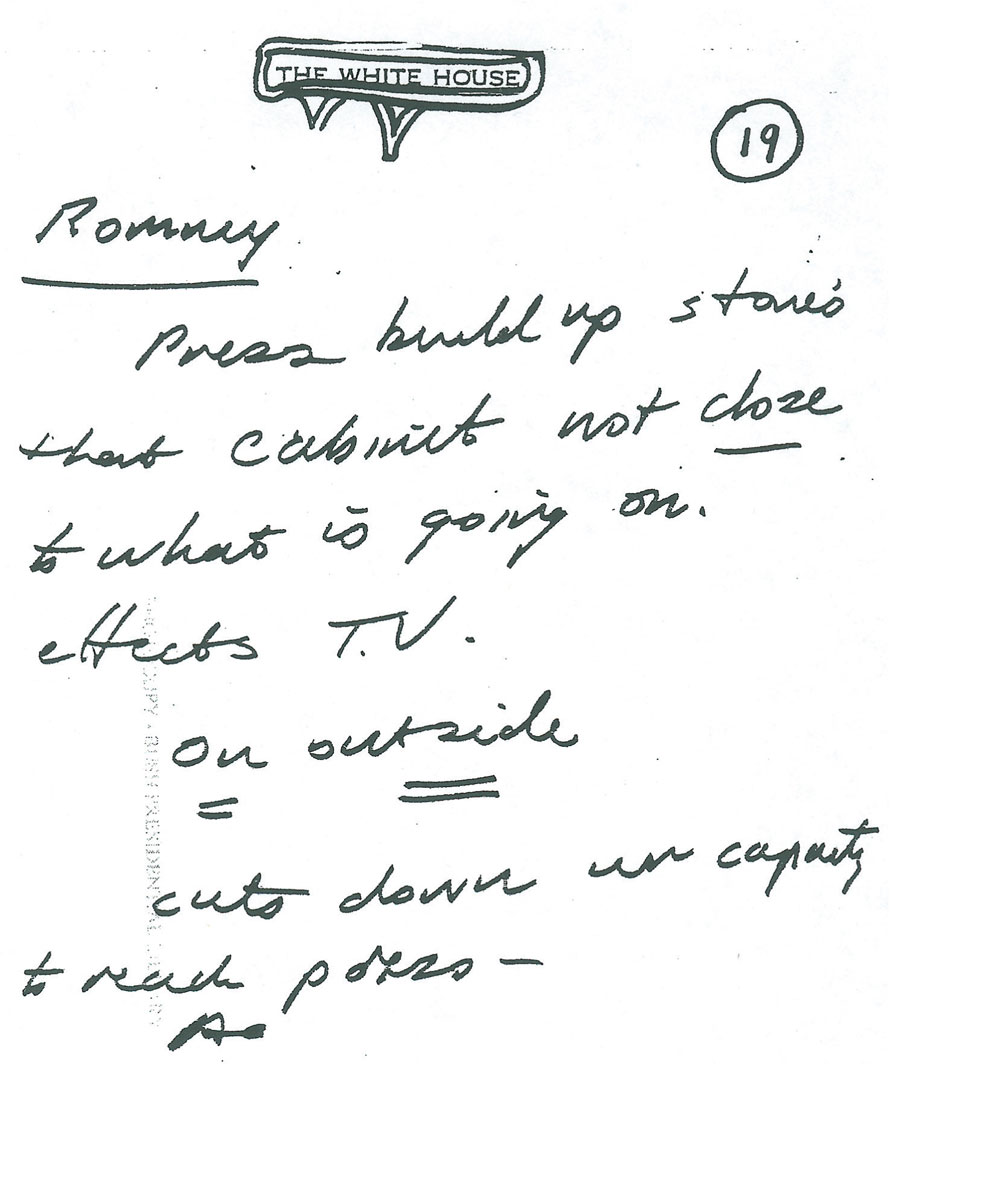 THE WHITE HOUSE
19
Romney
Press build up stories
that Cabinet not close
to what is going on.
effects T.V.
On outside
cuts down our capacity
to reach press —